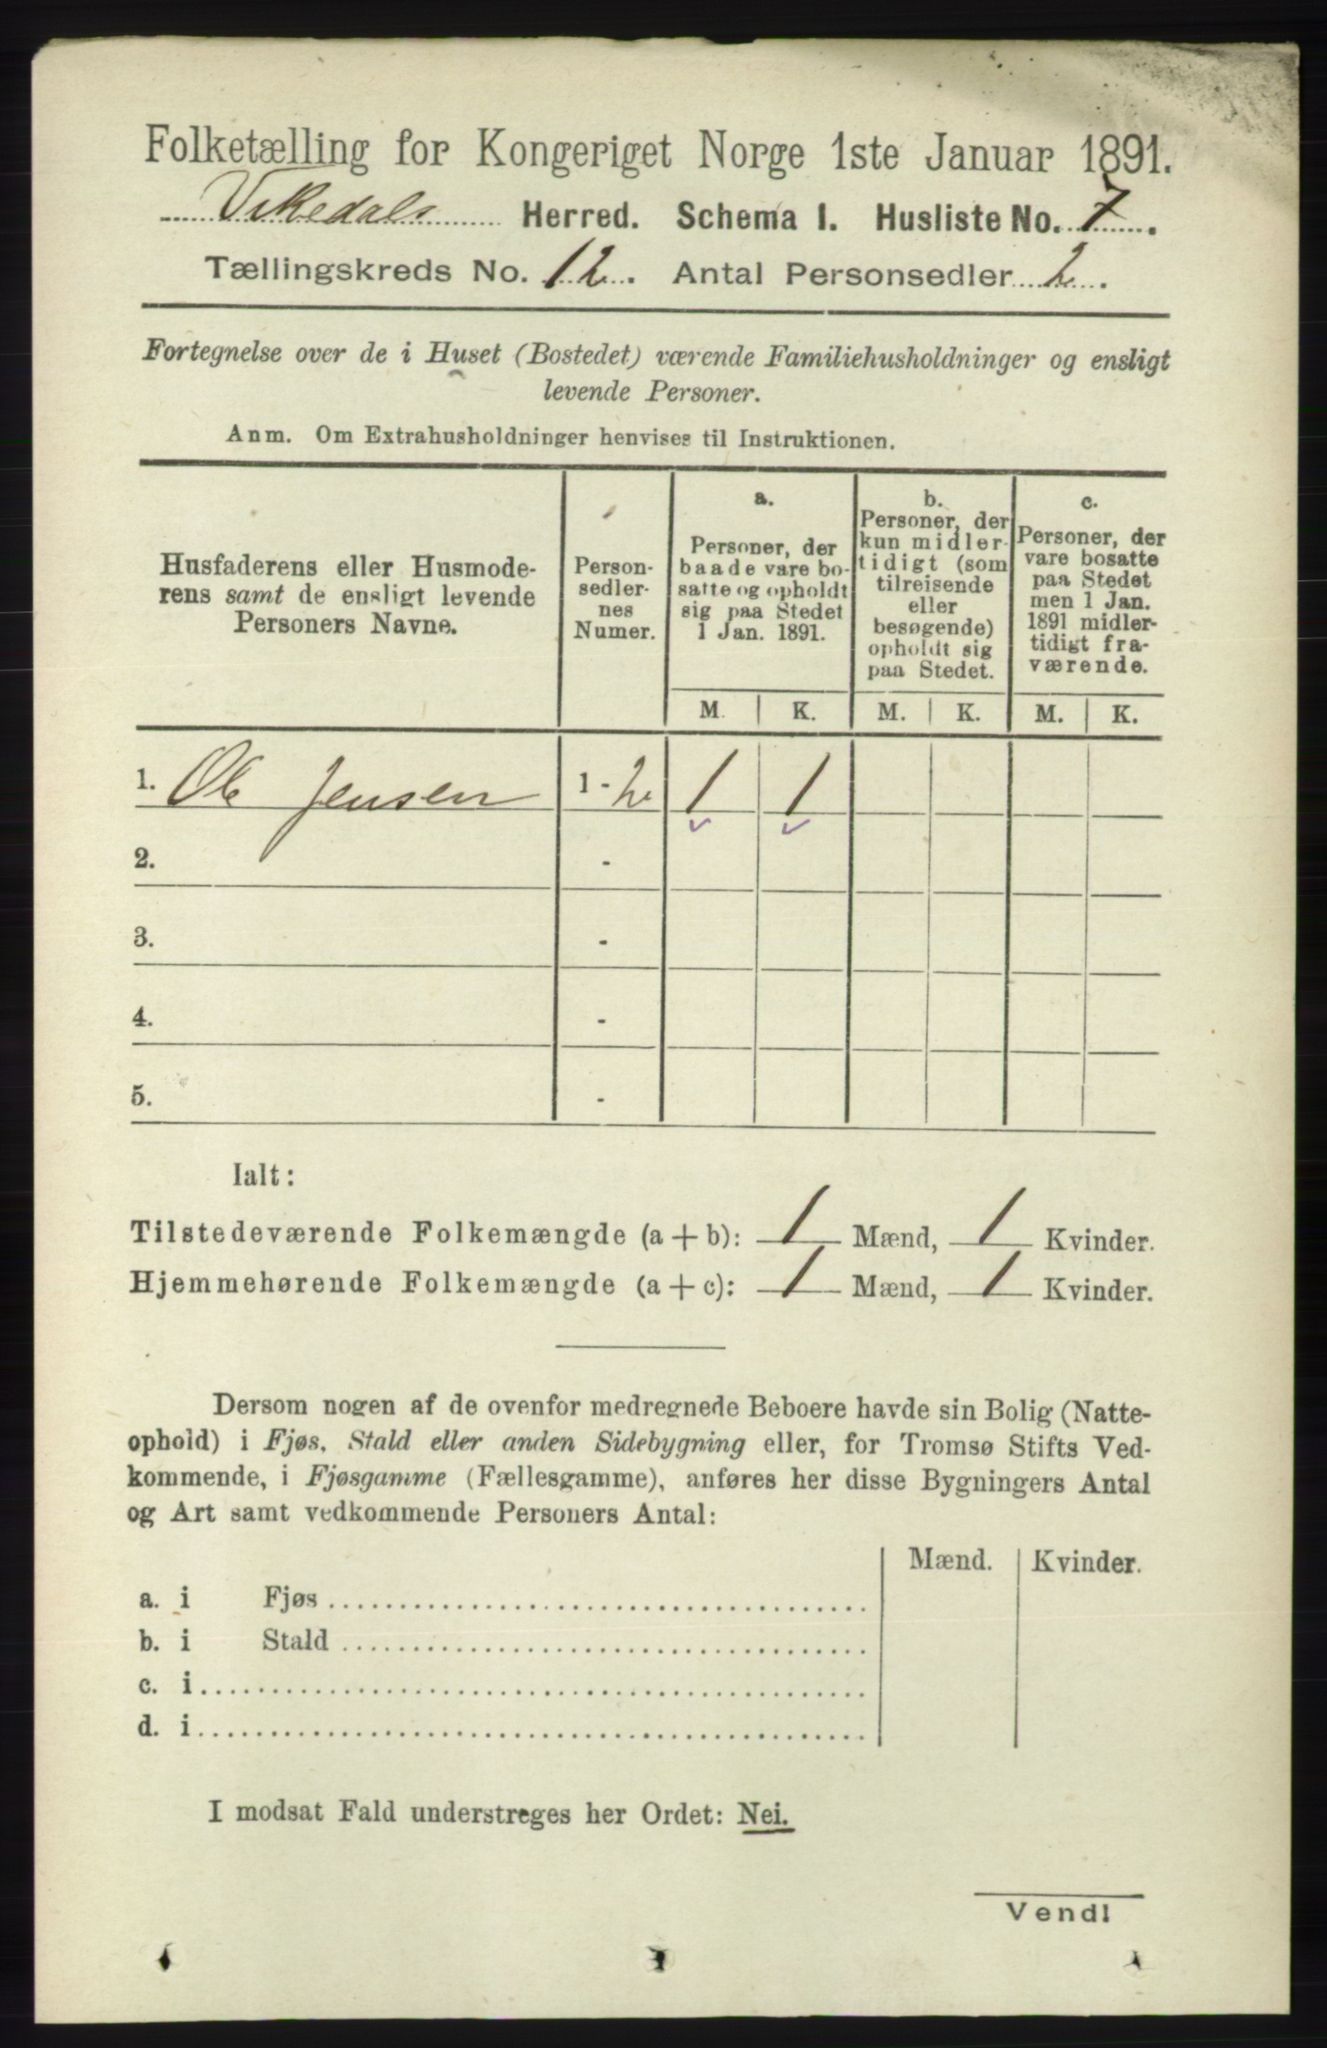 Folketælling for Kongeriget Norge 1ste Januar 1891.
Vikedals Herred. Schema I. Husliste No. 7.
Tællingskreds No. 12. Antal Personsedler 2.
Fortegnelse over de i Huset (Bostedet) værende Familiehusholdninger og ensligt
levende Personer.
Anm. Om Extrahusholdninger henvises til Instruktionen.
Husfaderens eller Husmode-
rens samt de ensligt levende
Personers Navne.
Person-
sedler-
nes
Numer.
a.
Personer, der
baade vare bo-
satte og opholdt
sig paa Stedet
1 Jan. 1891.
b.
Personer, der
kun midler-
tidigt (som
tilreisende
eller
besøgende)
opholdt sig
paa Stedet.
c.
Personer, der
vare bosatte
paa Stedet
men 1 Jan.
1891 midler-
tidigt fra-
værende.
M. K. M. K. M. K.
1. Ole Jensen 1 - 2 1 1
2. -
3. -
4. -
5. -
Ialt:
Tilstedeværende Folkemængde (a + b): 1 Mænd, 1 Kvinder.
Hjemmehørende Folkemængde (a + c): 1 Mænd, 1 Kvinder.
Dersom nogen af de ovenfor medregnede Beboere havde sin Bolig (Natte-
ophold) i Fjøs, Stald eller anden Sidebygning eller, for Tromsø Stifts Ved-
kommende, i Fjøsgamme (Fællesgamme), anføres her disse Bygningers Antal
og Art samt vedkommende Personers Antal:
Mænd. Kvinder.
a. i Fjøs
b. i Stald
c. i
d. i
I modsat Fald understreges her Ordet: Nei.
Vend!